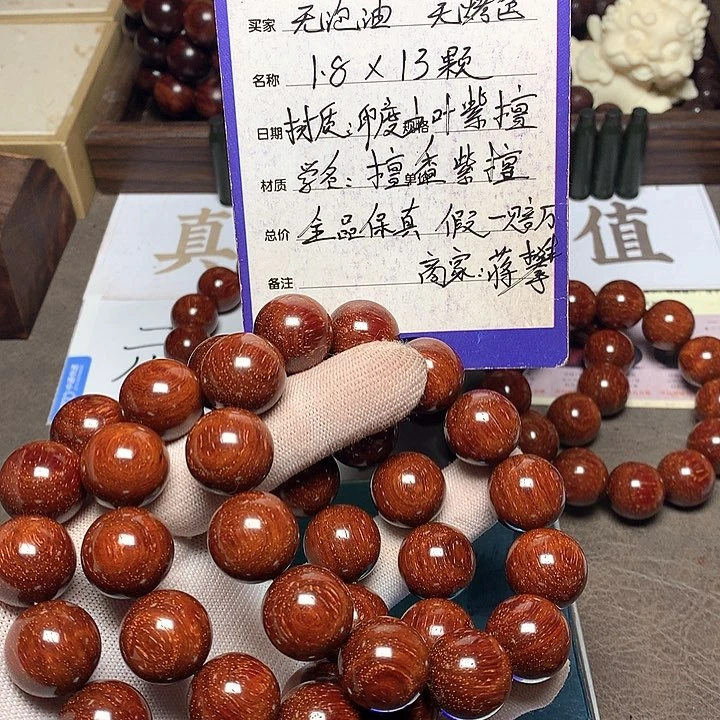 买家 无泡油 无烤色
名称 1.8×13颗
日期 材质:印度小叶紫檀
规格
材质 学名:檀香紫檀
单价
总价 全品保真 假一赔万
备注 商家:蒋攀
真
值